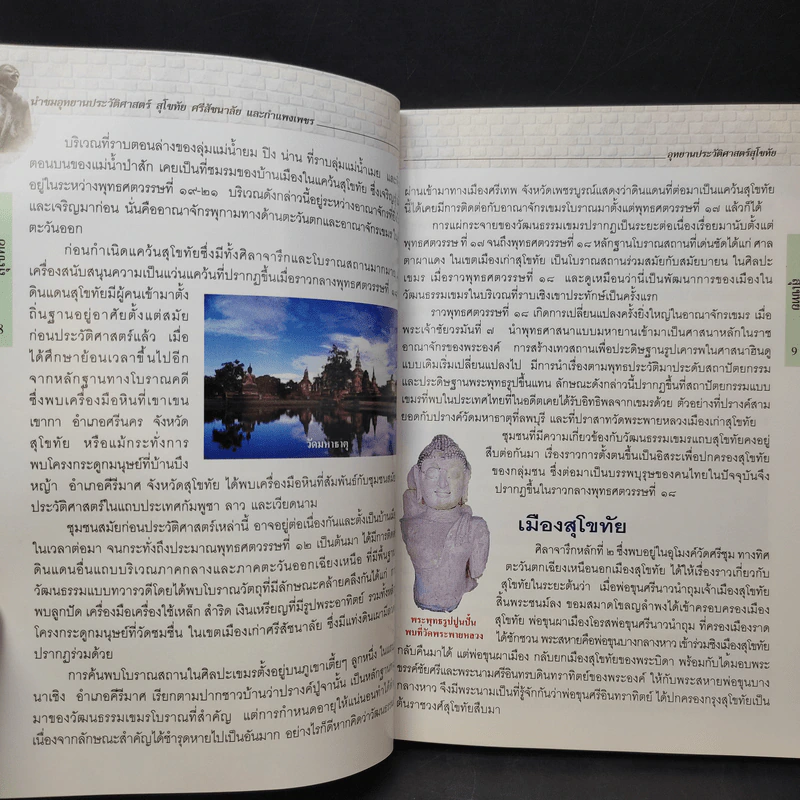 นำชมอุทยานประวัติศาสตร์ สุโขทัย ศรีสัชนาลัย และกำแพงเพชร
บริเวณที่ราบตอนล่างของลุ่มแม่น้ำยม ปิง น่าน ที่ราบลุ่มแม่น้ำเมย และ
ตอนบนของแม่น้ำป่าสัก เคยเป็นที่ชมรมของบ้านเมืองในแคว้นสุโขทัย ซึ่งเจริญ
อยู่ในระหว่างพุทธศตวรรษที่ ๑๙-๒๑ บริเวณดังกล่าวนี้อยู่ระหว่างอาณาจักรที่
และเจริญมาก่อน นั่นคืออาณาจักรพุกามทางด้านตะวันตกและอาณาจักรเขมร
ตะวันออก
ก่อนกำเนิดแคว้นสุโขทัยซึ่งมีทั้งศิลาจารึกและโบราณสถานมากมาย
เครื่องสนับสนุนความเป็นแว่นแคว้นที่ปรากฏขึ้นเมื่อราวกลางพุทธศตวรรษที่
ดินแดนสุโขทัยมีผู้คนเข้ามาตั้ง
ถิ่นฐานอยู่อาศัยตั้งแต่สมัย
ก่อนประวัติศาสตร์แล้ว เมื่อ
ได้ศึกษาย้อนเวลาขึ้นไปอีก
จากหลักฐานทางโบราณคดี
ซึ่งพบเครื่องมือหินที่เขาเขน
เขากา อำเภอศรีนคร จังหวัด
สุโขทัย หรือแม้กระทั่งการ
พบโครงกระดูกมนุษย์ที่บ้านบึง
หญ้า อำเภอคีรีมาศ จังหวัดสุโขทัย ได้พบเครื่องมือหินที่สัมพันธ์กับชุมชนสมัย
ประวัติศาสตร์ในแถบประเทศกัมพูชา ลาว และเวียดนาม
วัดมหาธาตุ
ชุมชนสมัยก่อนประวัติศาสตร์เหล่านี้ อาจอยู่ต่อเนื่องกันและตั้งเป็นบ้าน
ในเวลาต่อมา จนกระทั่งถึงประมาณพุทธศตวรรษที่ ๑๒ เป็นต้นมา ได้มีการติดต่อ
ดินแดนอื่นแถบบริเวณภาคกลางและภาคตะวันออกเฉียงเหนือ ที่มีพื้นฐาน
วัฒนธรรมแบบทวารวดีโดยได้พบโบราณวัตถุที่มีลักษณะคล้ายคลึงกันได้แก่
พบลูกปัด เครื่องมือเครื่องใช้เหล็ก สำริด เงินเหรียญที่มีรูปพระอาทิตย์ รวมทั้ง
โครงกระดูกมนุษย์ที่วัดชมชื่น ในเขตเมืองเก่าศรีสัชนาลัย ซึ่งมีแท่งดินเผา
ปรากฏร่วมด้วย
การค้นพบโบราณสถานในศิลปะเขมรตั้งอยู่บนภูเขาเตี้ยๆ ลูกหนึ่ง
นาเชิง อำเภอคีรีมาศ เรียกตามปากชาวบ้านว่าปรางค์ปู่จานั้น เป็นหลักฐาน
มาของวัฒนธรรมเขมรโบราณที่สำคัญ แต่การกำหนดอายุให้แน่นอนทำได้
เนื่องจากลักษณะสำคัญได้ชำรุดหายไปเป็นอันมาก อย่างไรก็ดีหากคิดว่าวัฒนธรรม
8
อุทยานประวัติศาสตร์สุโขทัย
ผ่านเข้ามาทางเมืองศรีเทพ จังหวัดเพชรบูรณ์แสดงว่าดินแดนที่ต่อมาเป็นแคว้นสุโขทัย
นี้ได้เคยมีการติดต่อกับอาณาจักรเขมรโบราณมาตั้งแต่พุทธศตวรรษที่ ๑๗ แล้วก็ได้
การแผ่กระจายของวัฒนธรรมเขมรปรากฏเป็นระยะต่อเนื่องเรื่อยมานับตั้งแต่
พุทธศตวรรษ ที่ ๑๗ จนถึงพุทธศตวรรษที่ ๑๘ หลักฐานโบราณสถานที่เด่นชัดได้แก่ ศาล
ตาผาแดง ในเขตเมืองเก่าสุโขทัย เป็นโบราณสถานร่วมสมัยกับสมัยบายน ในศิลปะ
เขมร เมื่อราวพุทธศตวรรษที่ ๑๘ และดูเหมือนว่านี้เป็นพัฒนาการของเมืองใน
วัฒนธรรมเขมรในบริเวณที่ราบเชิงเขาประทักษ์เป็นครั้งแรก
ราวพุทธศตวรรษที่ ๑๘ เกิดการเปลี่ยนแปลงครั้งยิ่งใหญ่ในอาณาจักรเขมร เมื่อ
พระเจ้าชัยวรมันที่ ๗ นำพุทธศาสนาแบบมหายานเข้ามาเป็นศาสนาหลักในราช
อาณาจักรของพระองค์ การสร้างเทวสถานเพื่อประดิษฐานรูปเคารพในศาสนาฮินดู
แบบเดิมเริ่มเปลี่ยนแปลงไป มีการนำเรื่องตามพุทธประวัติมาประดับสถาปัตยกรรม
และประดิษฐานพระพุทธรูปขึ้นแทน ลักษณะดังกล่าวนี้ปรากฏขึ้นที่สถาปัตยกรรมแบบ
เขมรที่พบในประเทศไทยที่ในอดีตเคยได้รับอิทธิพลจากเขมรด้วย ตัวอย่างที่ปรางค์สาม
ยอดกับปรางค์วัดมหาธาตุที่ลพบุรี และที่ปราสาทวัดพระพายหลวงเมืองเก่าสุโขทัย
ชุมชนที่มีความเกี่ยวข้องกับวัฒนธรรมเขมรแถบสุโขทัยคงอยู่
สืบต่อกันมา เรื่องราวการตั้งตนขึ้นเป็นอิสระเพื่อปกครองสุโขทัย
ของกลุ่มชน ซึ่งต่อมาเป็นบรรพบุรุษของคนไทยในปัจจุบันจึง
ปรากฏขึ้นในราวกลางพุทธศตวรรษที่ ๑๘
เมืองสุโขทัย
ศิลาจารึกหลักที่ ๒ ซึ่งพบอยู่ในอุโมงค์วัดศรีชุม ทางทิศ
ตะวันตกเฉียงเหนือนอกเมืองสุโขทัย ได้ให้เรื่องราวเกี่ยวกับ
สุโขทัยในระยะต้นว่า เมื่อพ่อขุนศรีนาวนำถุมเจ้าเมืองสุโขทัย
สิ้นพระชนม์ลง ขอมสมาดโขลญลำพงได้เข้าครอบครองเมือง
สุโขทัย พ่อขุนผาเมืองโอรสพ่อขุนศรีนาวนำถุม ที่ครองเมืองราด
ได้ชักชวน พระสหายคือพ่อขุนบางกลางหาว เข้าร่วมชิงเมืองสุโขทัย
กลับคืนมาได้ แต่พ่อขุนผาเมือง กลับยกเมืองสุโขทัยของพระบิดา พร้อมกับได้มอบพระ
ขรรค์ชัยศรีและพระนามศรีอินทรบดินทราทิตย์ของพระองค์ ให้กับพระสหายพ่อขุนบาง
กลางหาว จึงมีพระนามเป็นที่รู้จักกันว่าพ่อขุนศรีอินทราทิตย์ ได้ปกครองกรุงสุโขทัยเป็น
ต้นราชวงศ์สุโขทัยสืบมา
พระพุทธรูปปูนปั้น
พบที่วัดพระพายหลวง
สุโขทัย
9